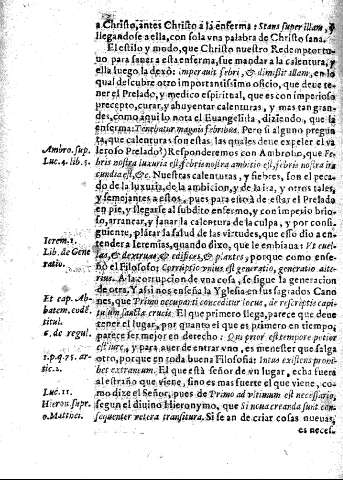 a Christo, antes Christo a la enferma: Stans super illam, y
llegandose a ella, con sola vna palabra de Christo sana.
El estilo y modo, que Christo nuestro Redemptor tu-
uo para sanar a esta enferma, fue mandar a la calentura, y
ella luego la dexò: imperauit febri, & dimisit illam, en lo
qual descubre otro importantissimo oficio, que deue te-
ner el Prelado, y medico espiritual, que es con imperioso
precepto, curar, y ahuyentar calenturas, y mas tan gran-
des, como aqui lo nota el Euangelista, diziendo, que la
enferma: Tenebatur magnis febribus. Pero si alguno pregun
ta, que calenturas son estas, las quales deue expeler el va
Ambro. sup.
leroso Prelado? Responderemos con Ambrosio, que Fe-
Luc. 4. lib. 3.
bris nostra luxuria est, febris nostra ambitio est, febris nostra ira
cundia est, &c. Nuestras calenturas, y fiebres, son el peca-
do de la luxuria, de la ambicion, y de la ira, y otros tales,
y semejantes a estos, pues para esto à de estar el Prelado
en pie, y llegarse al subdito enfermo, y con imperio brio-
so, arrancar, y sanar la calentura de la culpa, y por consi-
guiente, plātar la salud de las virtudes, que esso dio a en-
Ierem. 1.
tender a Ieremias, quando dixo, que le embiaua: Vt euel-
Lib. de Gene
las, & destruas, & edifices, & plantes, porque como ense-
ratio.
ño el Filosofo: Corruptio vnius est generatio, generatio alte-
rius. A la corrupcion de vna cosa, se sigue la generacion
de otra. Y assi nos enseña la Yglesia en sus sagrados Cano
Et cap. Ab-
nes, que Primo occupanti conceditur locus, de rescriptis capi-
batem, cod.
tulum sancta crucis. El que primero llega, parece que deue
titul.
tener el lugar, por quanto el que es primero en tiempo,
6. de regul.
parece ser mejor en derecho: Qui prior est tempore potior
est iure, y para auer de entrar vno, es menester que salga
1. p. q. 75. ar-
otro, porque en toda buena Filosofia: Intus existens prohi-
tic. 2.
bet extraneum. El que està señor de vn lugar, echa fuera
al estraño que viene, sino es mas fuerte el que viene, co-
Luc. 11.
mo dize el Señor, pues de Primo ad vltimum est necessario,
Hieron. supr.
segun el diuino Hieronymo, que Si noua creanda sunt con-
o. Matthei.
sequenter vetera transitura. Si se an de criar cosas nueuas,
es neces-